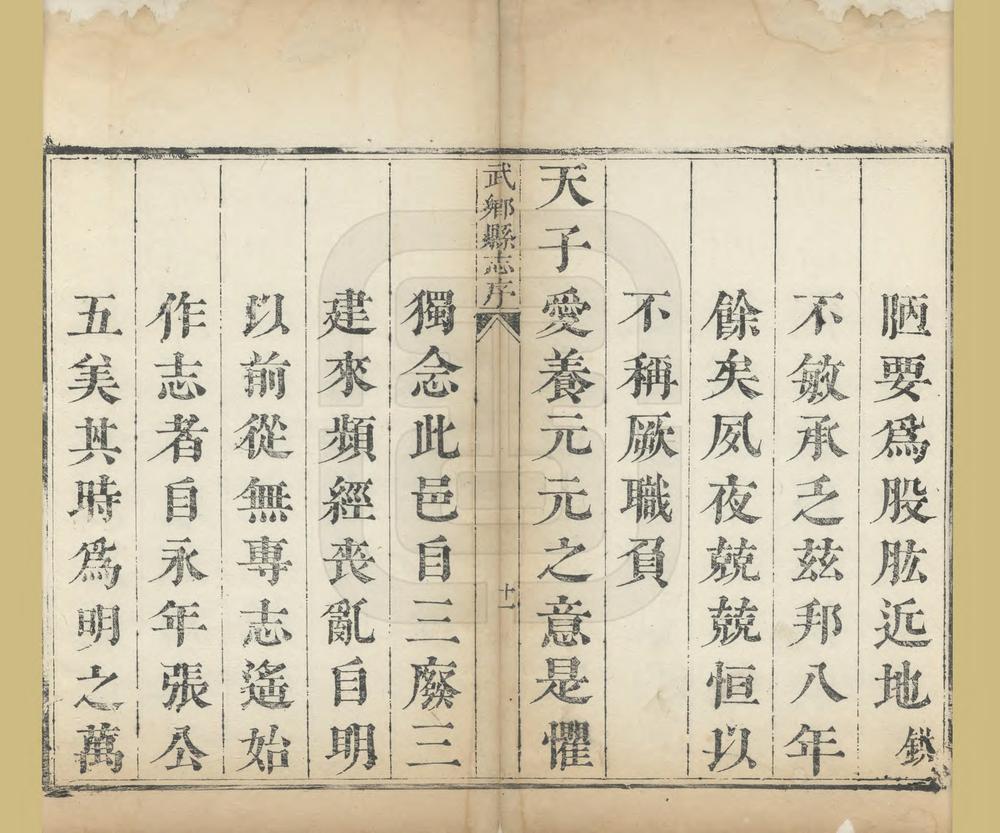 陋要爲股肱近地鉷
不敏承乏茲邦八年
餘矣夙夜兢兢恒以
不稱厥職負
天子愛養元元之意是懼
武鄉縣志序
十一
獨念此邑自三廢三
建來頻經喪亂自明
以前從無專志遙始
作志者自永年張公
五美其時爲明之萬